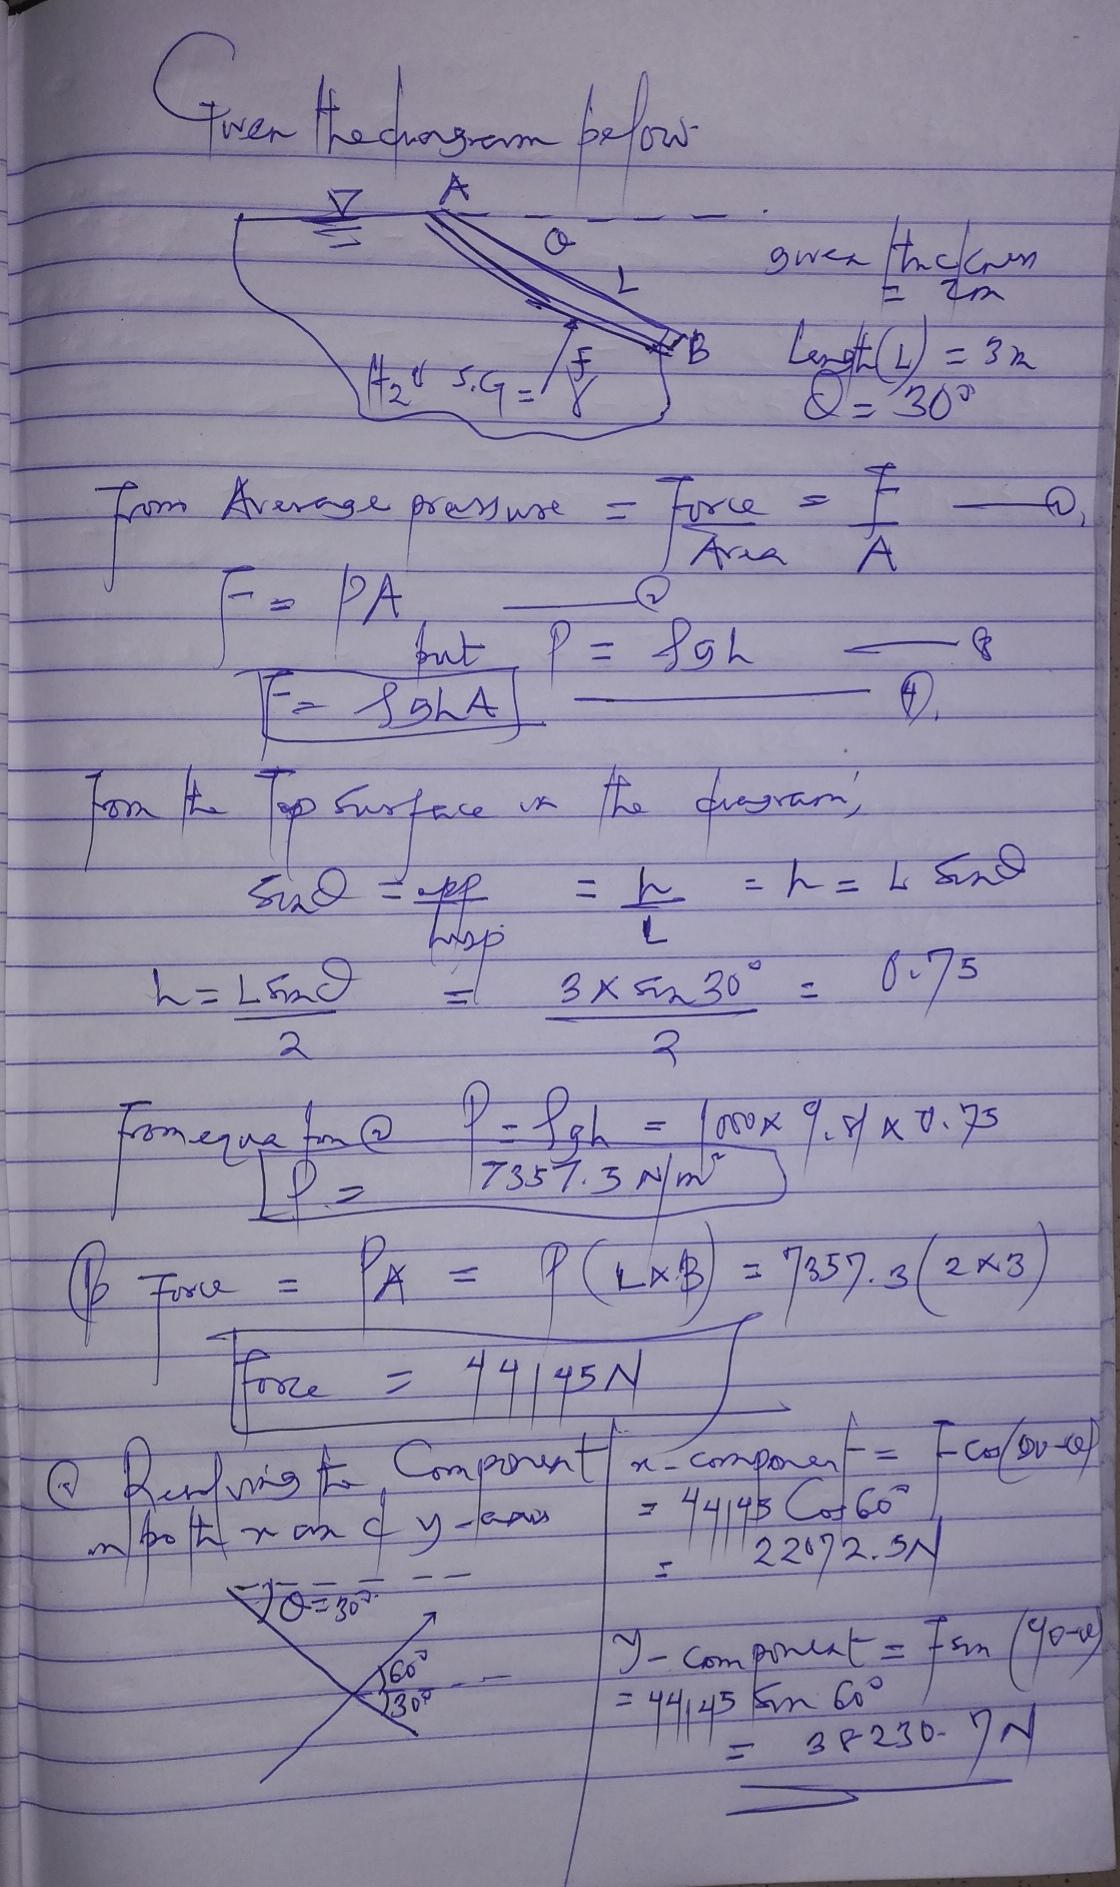 Given the diagram below
A
given thickness
= 2m
θ
L
B
Length (L) = 3m
θ = 30°
H₂O S.G =
F
γ
From Average pressure = Force/Area = F/A — ①
F = PA — ②
but P = ρgh — 3
F = ρghA — ④
From the Top surface in the diagram;
Sinθ = opp/hyp = h/L = h = L Sinθ
h = L Sinθ/2 = 3 x Sin 30°/2 = 0.75
From equation ② P = ρgh = 1000 x 9.81 x 0.75
P = 7357.5 N/m²
Force = PA = P (L x B) = 7357.5 (2 x 3)
Force = 44145N
Resolving to Component
in both x and y-axis
x-component = F cos (90-θ)
= 44145 Cos 60°
= 22072.5N
θ = 30°
60°
30°
y-component = F sin (90-θ)
= 44145 Sin 60°
= 38230.7N